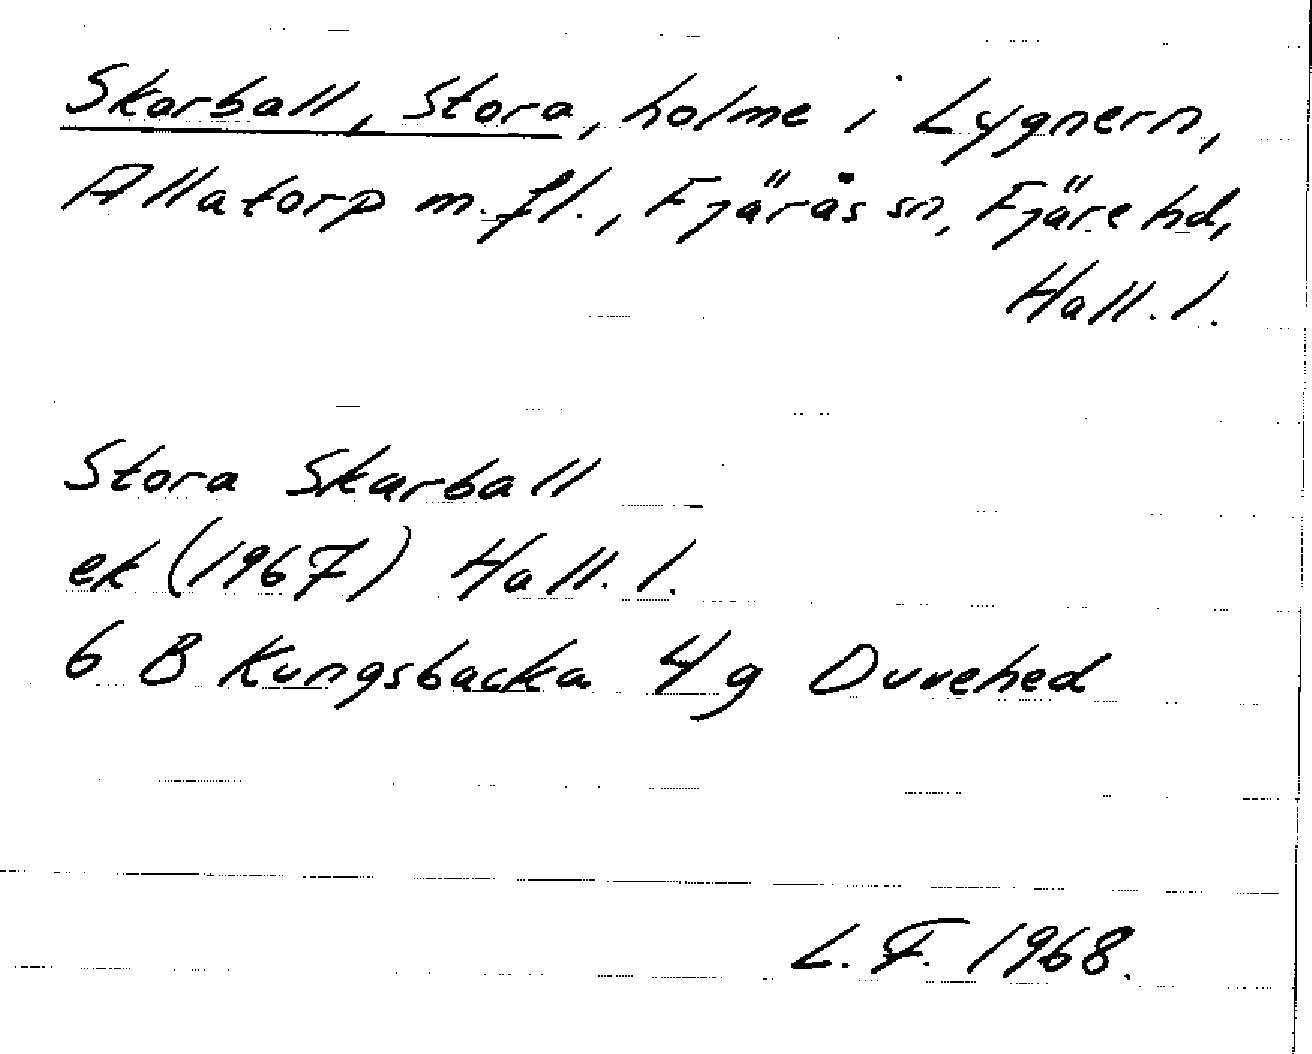 Skarball, Stora, holme i Lygnern,
Allatorp m.fl., Fjärås sn, Fjäre hd,
Hall.l.
Stora Skarball
ek (1967) Hall.l.
6 B Kungsbacka 4g Duvehed
L.F. 1968.